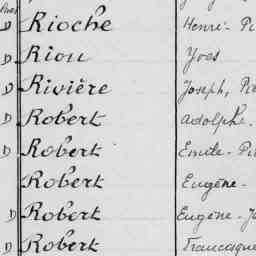 D Rioche Henri-
D Riou Yves
D Rivière Joseph,
D Robert Adolphe.
D Robert Emile-
Robert Eugène-
D Robert Eugène-
D Robert